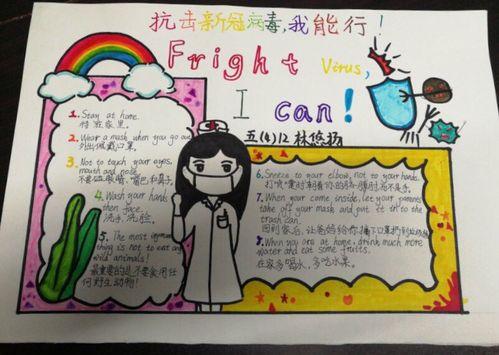 抗击新冠病毒,我能行!
Fright Virus,
I can!
五(4)12 林悠扬
1. Stay at home.
待在家里。
2. Wear a mask when you go out.
外出佩戴口罩。
3. Not to touch your eyes,
mouth and nose.
不要碰眼睛、嘴巴和鼻子。
4. Wash your hands
then face.
洗手、洗脸。
5. The most important
thing is not to eat any
wild animals!
最重要的是不要食用任
何野生动物!
6. Sneeze to your elbow, not to your hands.
打喷嚏时朝着你的胳膊肘而不是手。
7. When you come inside, let your parents
take off your mask and put it in to the
trash can.
回到家后,让爸妈给你摘下口罩扔到垃圾桶
8. When you are at home, drink much more
water and eat some fruits.
在家多喝水,多吃水果。